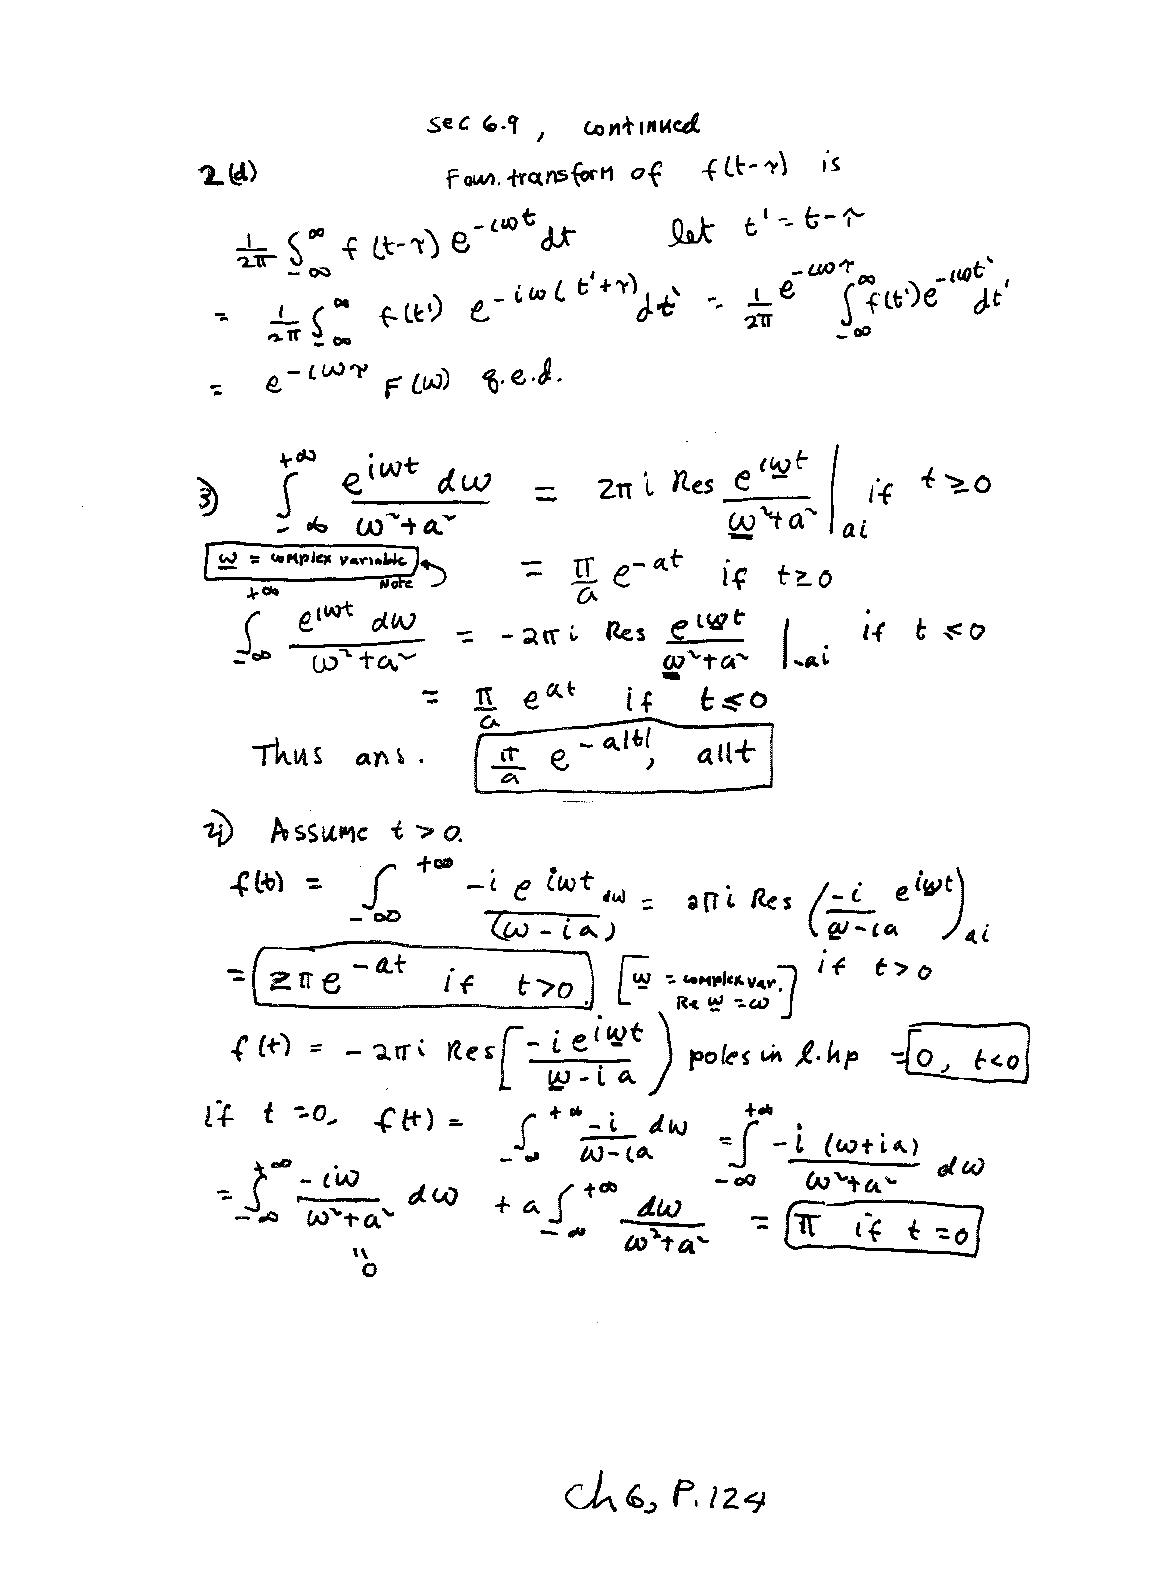 sec 6.9, continued
2(d) Four. transform of f(t-τ) is
1/2π ∫_{-∞}^{∞} f(t-τ) e^{-iωt} dt let t' = t-τ
= 1/2π ∫_{-∞}^{∞} f(t') e^{-iω(t'+τ)} dt' = 1/2π e^{-iωτ} ∫_{-∞}^{∞} f(t') e^{-iωt'} dt'
= e^{-iωτ} F(ω) q.e.d.
3) ∫_{-∞}^{+∞} e^{iωt} dω / (ω²+a²) = 2πi Res e^{iω̲t} / (ω̲²+a²) |_{ai} if t≥0
ω̲ = complex variable Note
= π/a e^{-at} if t≥0
∫_{-∞}^{+∞} e^{iωt} dω / (ω²+a²) = -2πi Res e^{iω̲t} / (ω̲²+a²) |_{-ai} if t≤0
= π/a e^{at} if t≤0
Thus ans. π/a e^{-a|t|}, all t
4) Assume t>0.
f(t) = ∫_{-∞}^{+∞} -i e^{iωt} / (ω-ia) dω = 2πi Res (-i / (ω̲-ia) e^{iω̲t})_{ai}
= 2πe^{-at} if t>0. [ω̲ = complex var. Re ω̲ = ω] if t>0
f(t) = -2πi Res [-i e^{iω̲t} / (ω̲-ia)) poles in l.hp = 0, t<0
if t=0, f(t) = ∫_{-∞}^{+∞} -i / (ω-ia) dω = ∫_{-∞}^{+∞} -i (ω+ia) / (ω²+a²) dω
= ∫_{-∞}^{+∞} -iω / (ω²+a²) dω + a ∫_{-∞}^{+∞} dω / (ω²+a²) = π if t=0
"
0
Ch 6, P. 124